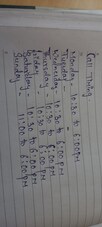 Call Timing
Monday - 10:30 to 6:00PM
Tuesday - 10:30 to 6:00PM
Wednesday - 10:30 to 6:00PM
Thursday - 10:30 to 6:00PM
Friday - 10:30 to 6:00PM
Saturday - 10:30 to 6:00PM
Sunday - 11:00 to 6:00PM